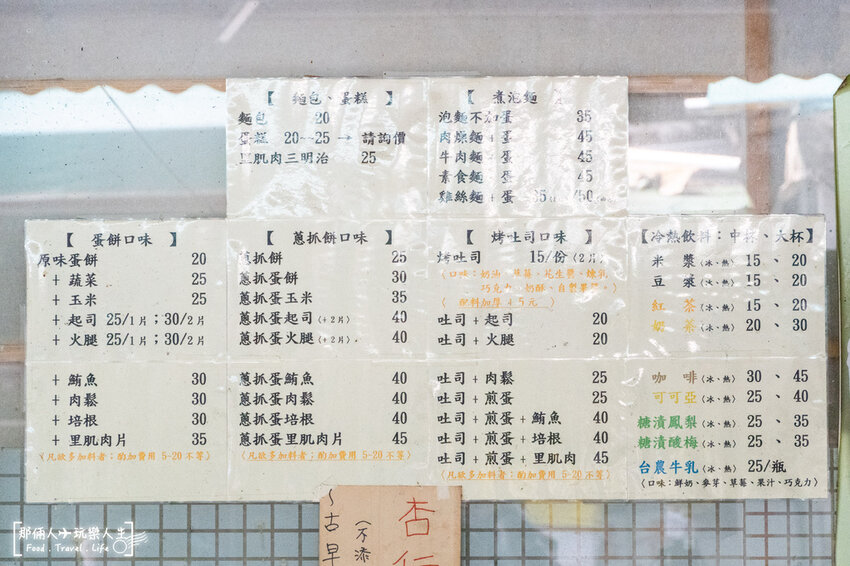 【 麵包、蛋糕 】
麵包 20
蛋糕 20~25 → 請詢價
里肌肉三明治 25
【 煮泡麵 】
泡麵不加蛋 35
肉燥麵 + 蛋 45
牛肉麵 + 蛋 45
素食麵 + 蛋 45
雞絲麵 + 蛋
【 蛋餅口味 】
原味蛋餅 20
+ 蔬菜 25
+ 玉米 25
+ 起司 25/1片；30/2片
+ 火腿 25/1片；30/2片
+ 鮪魚 30
+ 肉鬆 30
+ 培根 30
+ 里肌肉片 35
(凡欲多加料者：酌加費用 5-20 不等)
【 蔥抓餅口味 】
蔥抓餅 25
蔥抓蛋餅 30
蔥抓蛋玉米 35
蔥抓蛋起司(+2片) 40
蔥抓蛋火腿(+2片) 40
蔥抓蛋鮪魚 40
蔥抓蛋肉鬆 40
蔥抓蛋培根 40
蔥抓蛋里肌肉片 45
(凡欲多加料者；酌加費用 5-20 不等)
【 烤吐司口味 】
烤吐司 15/份(2片)
(口味：奶油、草莓、花生醬、煉乳
巧克力、奶酥、自製果醬。)
( 配料加厚 +5元 )
吐司 + 起司 20
吐司 + 火腿 20
吐司 + 肉鬆 25
吐司 + 煎蛋 25
吐司 + 煎蛋 + 鮪魚 40
吐司 + 煎蛋 + 培根 40
吐司 + 煎蛋 + 里肌肉 45
(凡欲多加料者：酌加費用 5-20 不等)
【冷熱飲料：中杯、大杯】
米 漿(冰、熱) 15 、 20
豆 漿(冰、熱) 15 、 20
紅 茶(冰、熱) 15 、 20
奶 茶(冰、熱) 20 、 30
咖 啡(冰、熱) 30 、 45
可可亞(冰、熱) 25 、 40
糖漬鳳梨(冰、熱) 25 、 35
糖漬酸梅(冰、熱) 25 、 35
台農牛乳(冰、熱) 25/瓶
(口味：鮮奶、麥芽、草莓、果汁、巧克力)
杏仁
(不添
~古早
那倆人玩樂人生
Food . Travel . Life